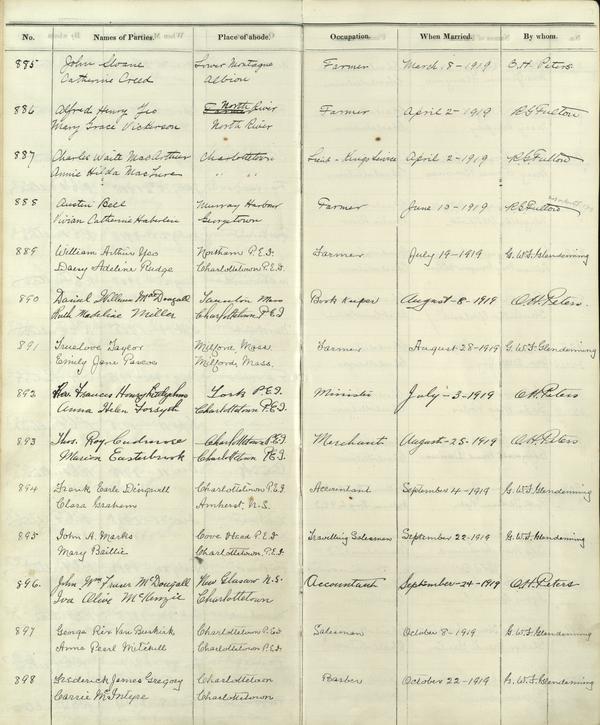 No. Names of Parties. Place of abode. Occupation. When Married. By whom.
885 John Sloane Lower Montague Farmer March 18-1919 Peters
Catherine Creed Albion
886 Alfred Henry Yeo North River Farmer April 2-1919 R G Fulton
Mary Grace Vickerson North River
887 Charles Waite MacArthur Charlottetown April 2-1919 R G Fulton
Annie Hilda MacLure " "
888 Austin Bell Murray Harbour Farmer June 10-1919 R G Fulton
Vivian Catherine Georgetown
889 William Arthur Yeo Northam P.E.I Farmer July 19-1919 G. W. F. Glendenning
Daisy Adeline Rudge Charlottetown P.E.I
890 Daniel William MacDougall Taunton Mass Book Keeper August-8-1919 Peters.
Ruth Madeline Miller Charlottetown P.E.I
891 Truelove Taylor Milford Mass. Farmer August 28-1919 G. W. F. Glendenning
Emily Jane Pascoe Milford, Mass.
892 Rev Frances Henry York P.E.I. Minister July-3-1919 Peters
Anna Helen Forsyth Charlottetown P.E.I.
893 Thos. Roy. Cudmore Charlottetown P.E.I Merchant August-25-1919 Peters
Marion Easterbrook Charlottetown P.E.I.
894 Frank Earle Dingwell Charlottetown P.E.I Accountant September 4-1919 G. W. F. Glendenning
Clara Graham Amherst, N.S.
895 John A. Marks Cove Head P.E.I Travelling Salesman September 22-1919 G. W. F. Glendenning
Mary Baillie Charlottetown, P.E.I
896. John Wm Fraser McDougall New Glasgow N.S. Accountant September-24-1919 Peters
Iva Olive McKenzie Charlottetown
897 George Rix Van Buskirk Charlottetown P.E.I Salesman October 8-1919 G. W. F. Glendenning
Anna Pearl Charlottetown P.E.I
898 Frederick James Gregory Charlottetown Barber October 22-1919 G. W. F. Glendenning
Carrie Charlottetown